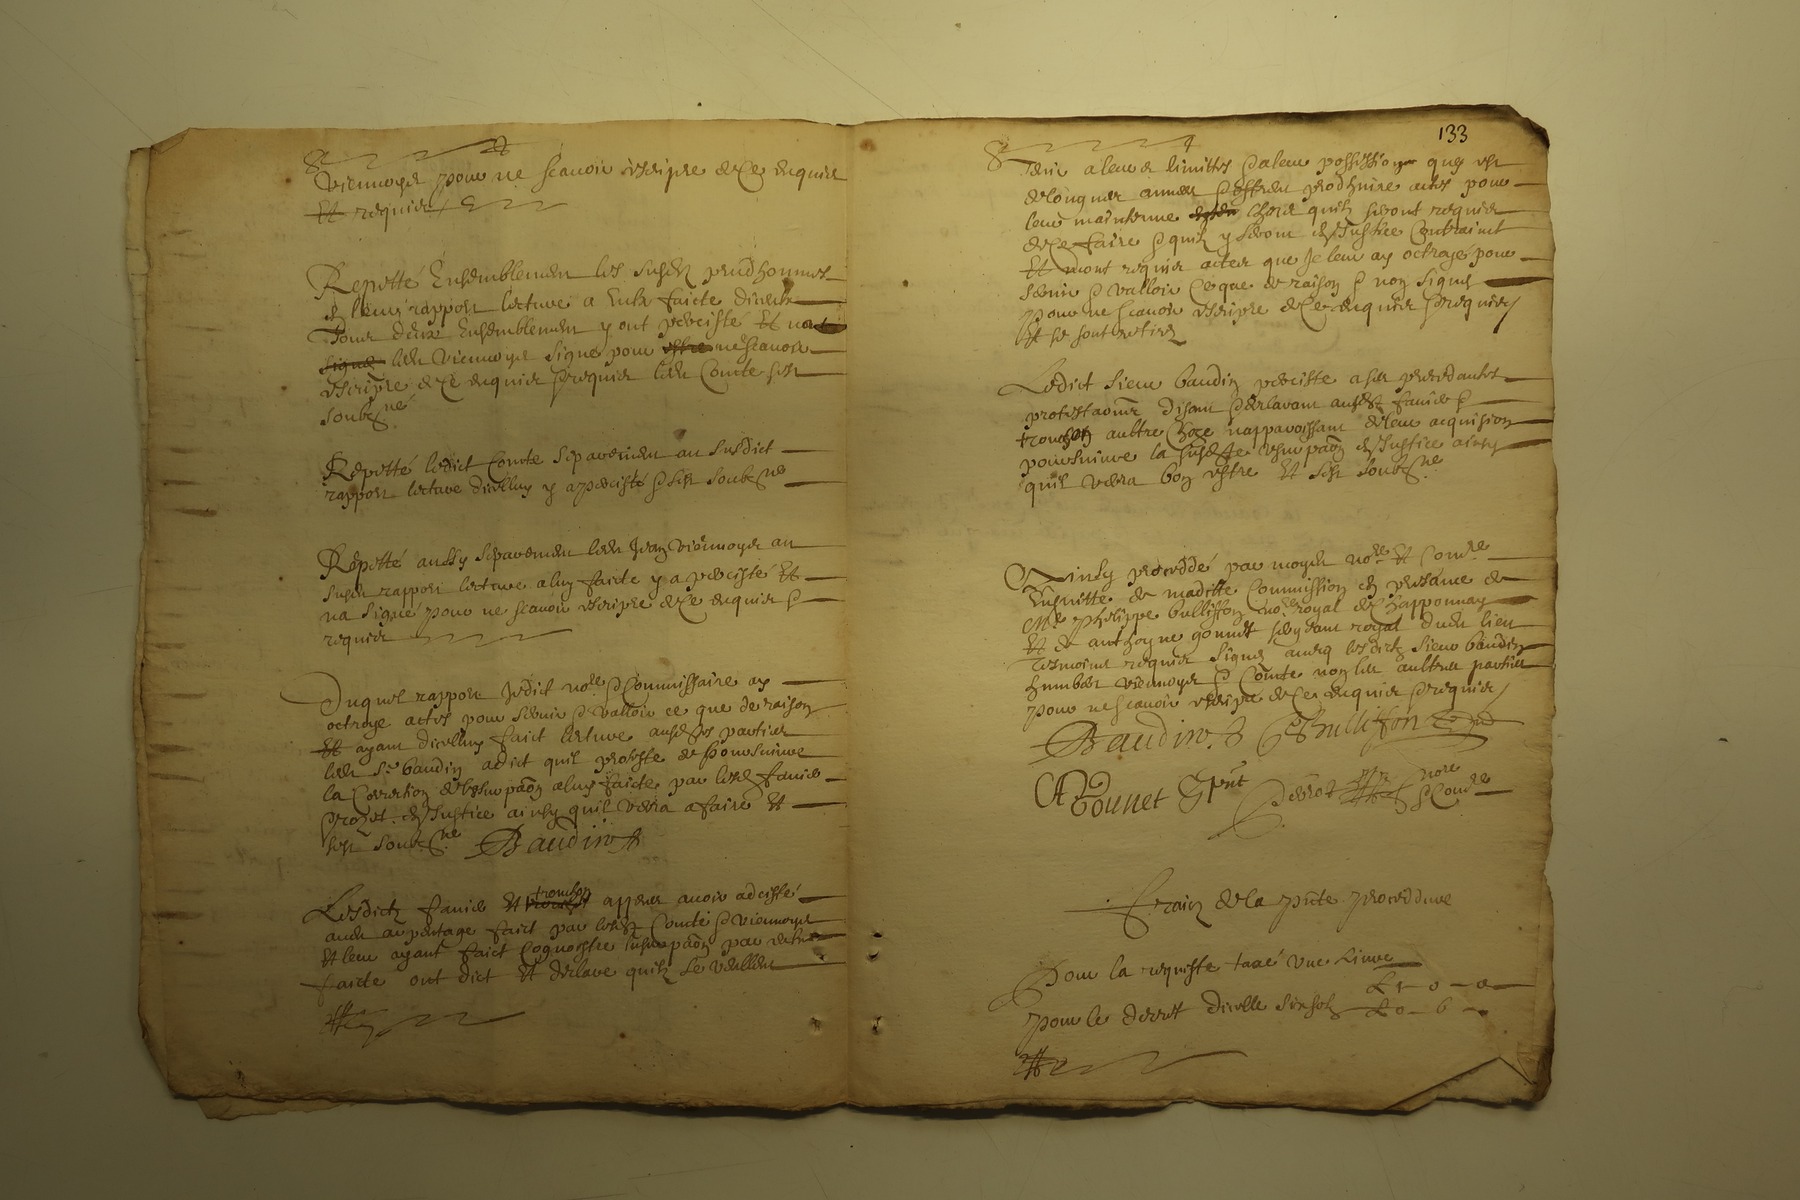 Viennoys pour ne scavoir escripre de ce enquis
Et requis
Repetté Ensemblement les susdictz prudhommes
leur rapport lecture a Eulx faicte diceluy
Tous deux Ensemblement y ont percisté Et
led Viennoys signé pour ne scavoir
escripre de ce enquis & requis led Comte sest
soubzné
Repetté ledict Comte separement au susdict
rapport lecture dicelluy y a percisté & sest soubzné
Repetté aussy separement led Jean Viennoys au
susd rapport lecture a luy faicte y a percisté Et
na signé pour ne scavoir escripre de ce enquis &
requis
Duquel rapport Jedict nore & Commissaire ay
octroyé actes pour servir & valloir ce que de raison
Et ayant dicelluy faict lecture ausd parties
led Sr baudin a dict quil proteste de poursuivre
la Correction de lusurpaon a luy faicte par lesd favier
en Justice ainsy quil verra a faire Et
sest soubzné Baudin
Lesdictz favier Et tronchon appres avoir adcisté
aud arpentage faict par lesd Comte & Viennoys
Et leur ayant faict Cognoistre lusurpaon par
faicte ont dict Et declaré quilz se veullent
133
tenir a leurs limittes & a leur possession que est
de longues annees & offrent prodhuire actes pour
leur maintenue chose quilz seront requis
de ce faire & quilz y seront en Justice Contrainct
Et mont requis actes que Je leur ay octroyé pour
servir & valloir ce que de raison & non signés
pour ne scavoir escripre de ce enquis & requis
Et se sont retirés
Ledict sieur baudin perciste a ses precedantes
protestaons disant & declarant ausd favier &
tronchon aultre chose napparoissant de leur acquision
poursuivre la susd usurpaon en Justice ainsy
quil verra bon estre Et sest soubzné
Ainsy procedé par moyd nore Et Comre
Ensuitte de maditte Commission en presance de
Me Philippe bullisson nore royal de Chapponnay
Et de anthoyne gonnet sergeant royal dud lieu
tesmoins requis signés avecq lesdictz sieur baudin
humbert viennoys & Comte non les aultres parties
pour ne scavoir escripre de ce enquis & requis
Baudin Bullisson
Gonnet pnt nore
& Comre
Fraiz de la pnte procedure
Pour la requiste taxé une Livre
L 1 - 0 - 0
Pour le decret dicelle six solz L 0 - 6 -